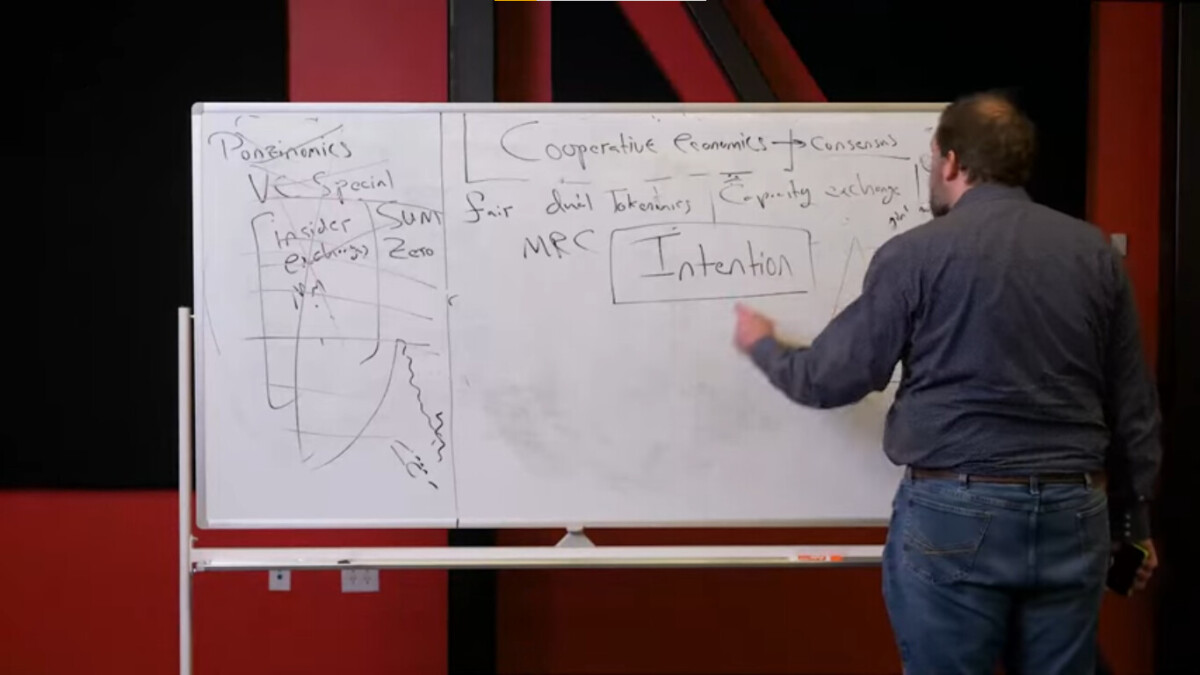 Ponzinomics
VC Special
insider
exchanges
SUM
Zero
Cooperative economics → Consensus
fair dual Tokenomics
Capacity exchange
MRC
Intention